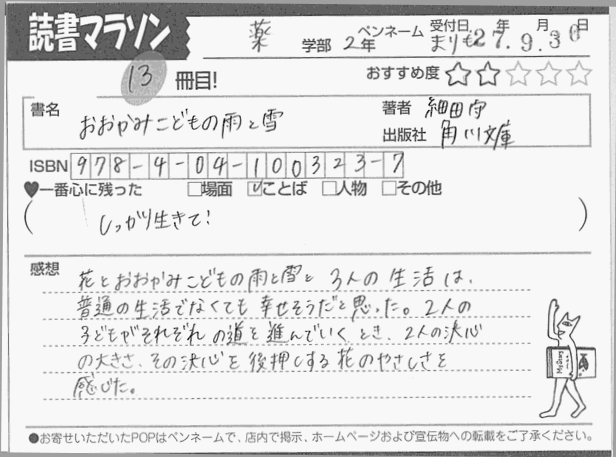 読書マラソン 薬 学部 2年 ペンネーム まりも 受付日 27.年9.月30日
13 冊目! おすすめ度 ★★☆☆☆
書名 おおかみこどもの雨と雪 著者 細田守
出版社 角川文庫
ISBN 978-4-04-100323-7
♥一番心に残った □場面 ☑ことば □人物 □その他
( しっかり生きて! )
感想 花とおおかみこどもの雨と雪と3人の生活は、
普通の生活でなくても幸せそうだと思った。2人の
子どもがそれぞれの道を進んでいくとき、2人の決心
の大きさ、その決心を後押しする花のやさしさを
感じた。
●お寄せいただいたPOPはペンネームで、店内で掲示、ホームページおよび宣伝物への転載をご了承ください。